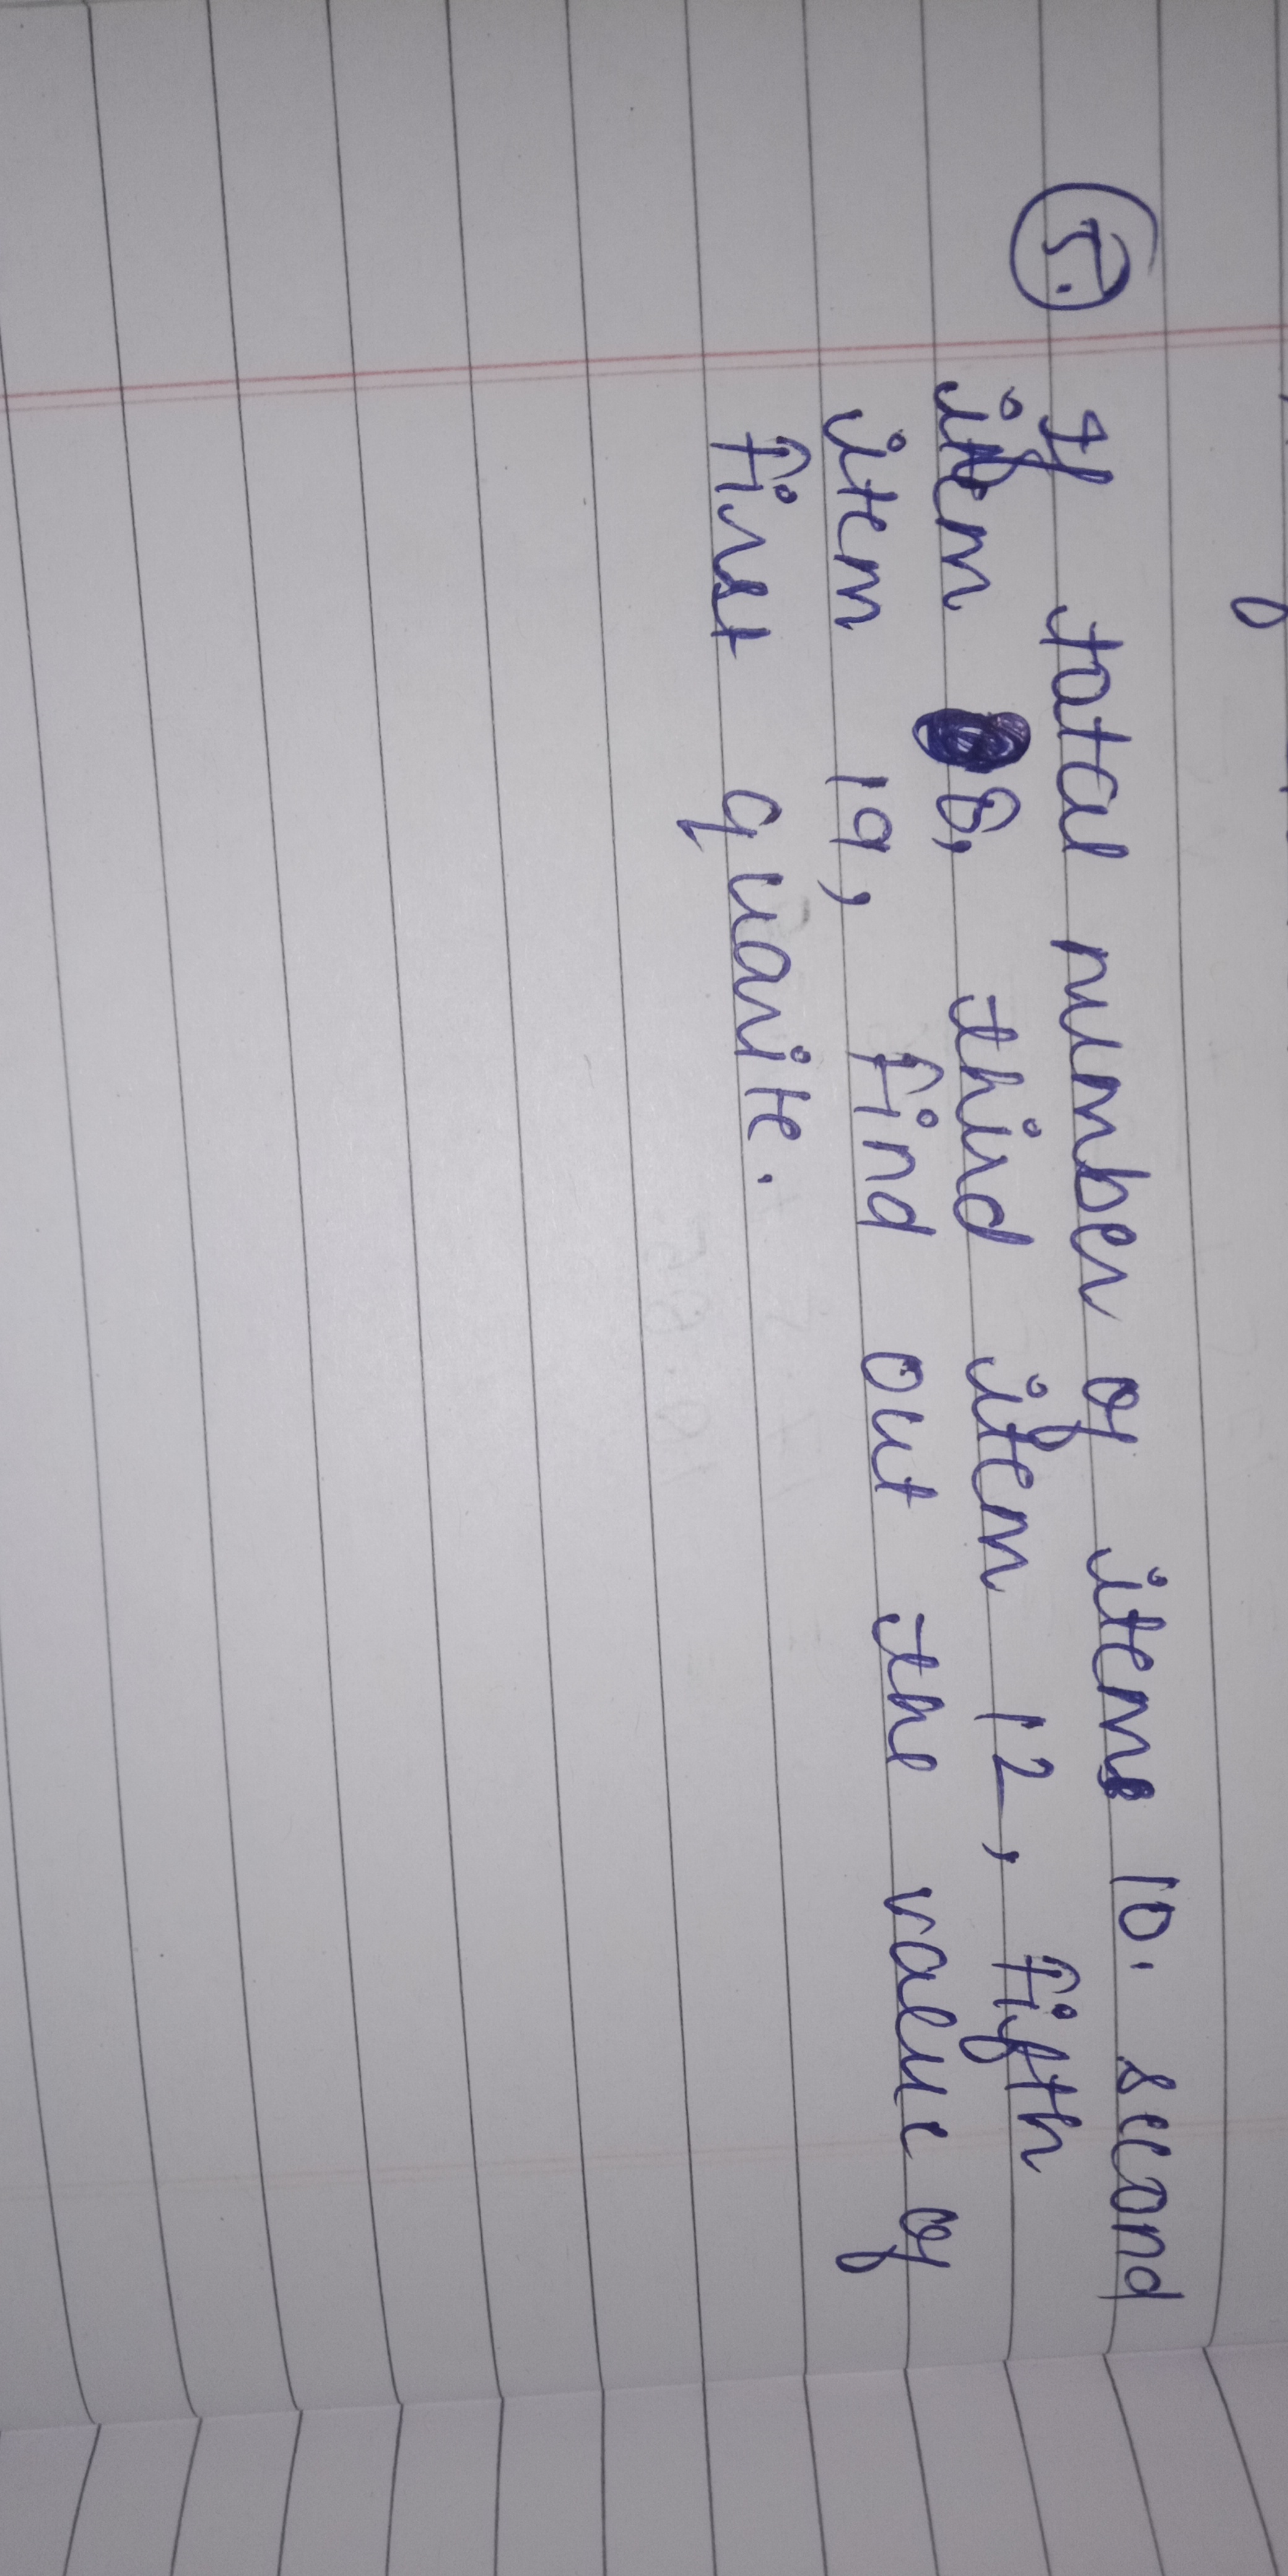 5. If total number of items 10. second
item 8, third item 12, fifth
item 19, find out the value of
first quarite.